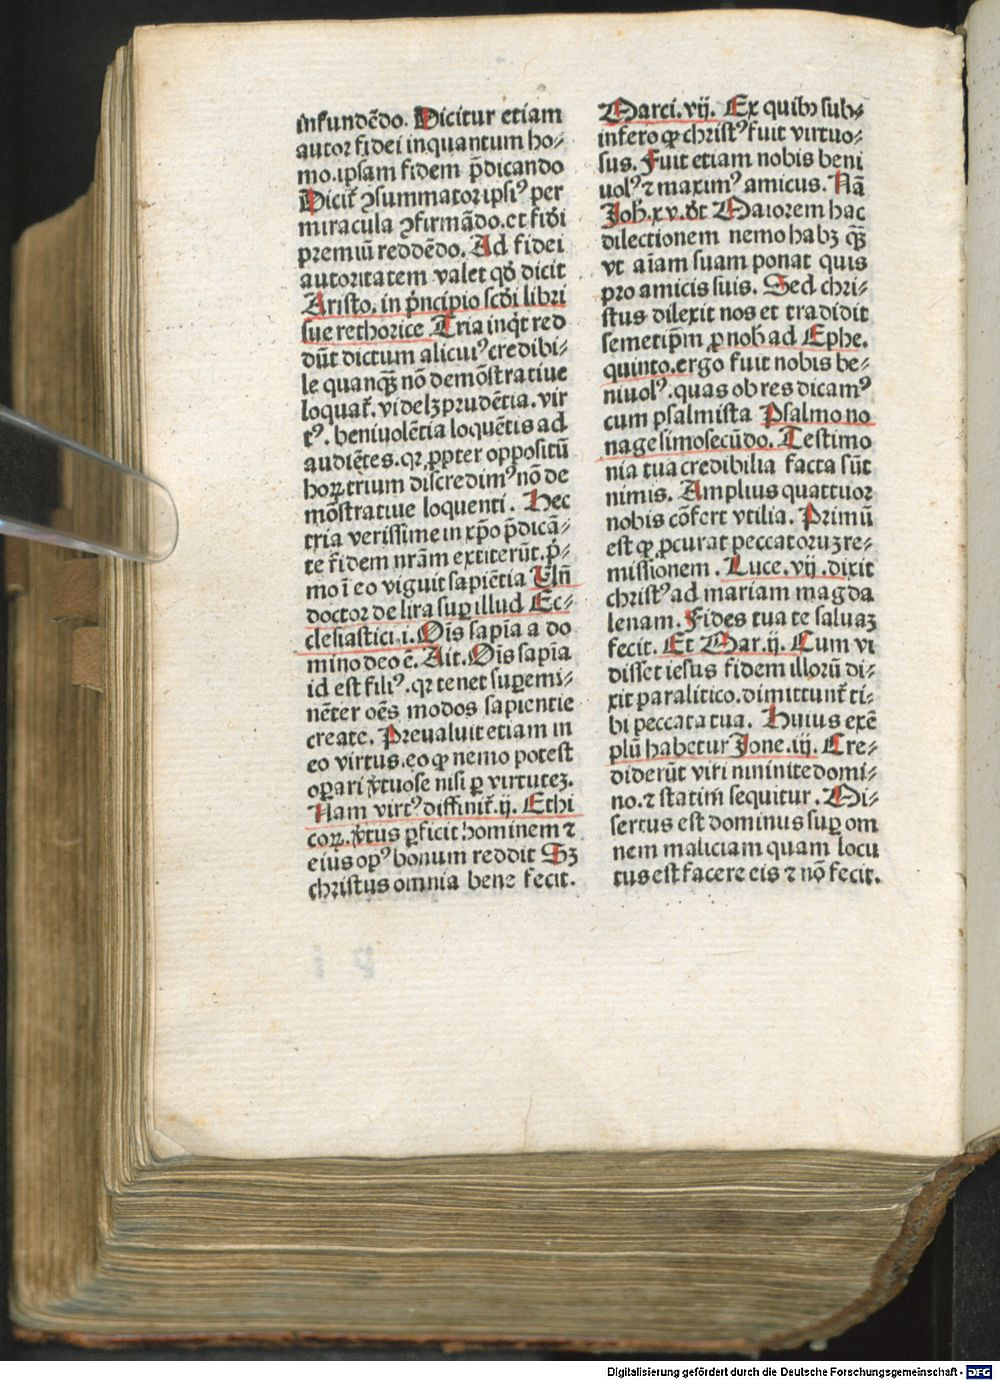 infundēdo. Dicitur etiam
autor fidei inquantum ho⸗
mo.ipsam fidem p̄dicando
Dicit᷑ ꝯsummator ipsiꝰ per
miracula ꝯfirmādo.et fiďi
premiū reddēdo. Ad fidei
autoritatem valet qđ dicit
Aristo. in p̓ncipio scďi libri
sue rethorice Tria inq̇t red
dūt dictum alicuiꝰ credibi⸗
le quanqꝫ nō demōstratiue
loquat᷑. videlꝫ prudētia. vir
tꝰ. beniuolētia loquētis ad
audiētes. qꝛ ꝓpter oppositū
hoꝝ trium discredimꝰ nō de
mōstratiue loquenti. Hec
tria verissime in xp̄o p̄dicā⸗
te fidem nr̄am extiterūt. p̓⸗
mo ī eo viguit sapiētia Uñ
doctor de lira suꝑ illud Ec⸗
clesiastici.i. Oīs sapīa a do
mino deo ē. Ait. Oīs sapīa
id est filiꝰ. qꝛ tenet suꝑemi⸗
nēter oēs modos sapientie
create. Preualuit etiam in
eo virtus. eo ꝙ nemo potest
oꝑari v̓tuose nisi ꝑ virtuteꝫ.
Nam virtꝰ diffinit᷑.ij. Ethi
coꝝ. v̓tus ꝑficit hominem ⁊
eius opꝰ bonum reddit Sꝫ
christus omnia bene fecit.
Marci. vij. Ex quibꝰ sub⸗
infero ꝙ christꝰ fuit virtuo⸗
sus. Fuit etiam nobis beni
uolꝰ ⁊ maximꝰ amicus. Nā
Joh. xv. đt Maiorem hac
dilectionem nemo habꝫ qꝫ̄
vt aīam suam ponat quis
pro amicis suis. Sed chri⸗
stus dilexit nos et tradidit
semetip̄m ꝓ nob ad Ephe.
quinto. ergo fuit nobis be⸗
niuolꝰ. quas ob res dicamꝰ
cum psalmista Psalmo no
nagesimosecūdo. Testimo
nia tua credibilia facta sūt
nimis. Amplius quattuor
nobis cōfert vtilia. Primū
est ꝙ ꝓcurat peccatoruꝫ re⸗
missionem. Luce. vij. dixit
christꝰ ad mariam magda
lenam. Fides tua te saluaꝫ
fecit. Et Mar. ij. Cum vi
disset iesus fidem illorū di⸗
xit paralitico. dimittunt᷑ ti⸗
bi peccata tua. Huius exē
plū habetur Jone. iij. Cre⸗
diderūt viri niniuite domi⸗
no. ⁊ statim sequitur. Mi⸗
sertus est dominus suꝑ om
nem maliciam quam locu
tus est facere eis ⁊ nō fecit.
Digitalisierung gefördert durch die Deutsche Forschungsgemeinschaft - DFG